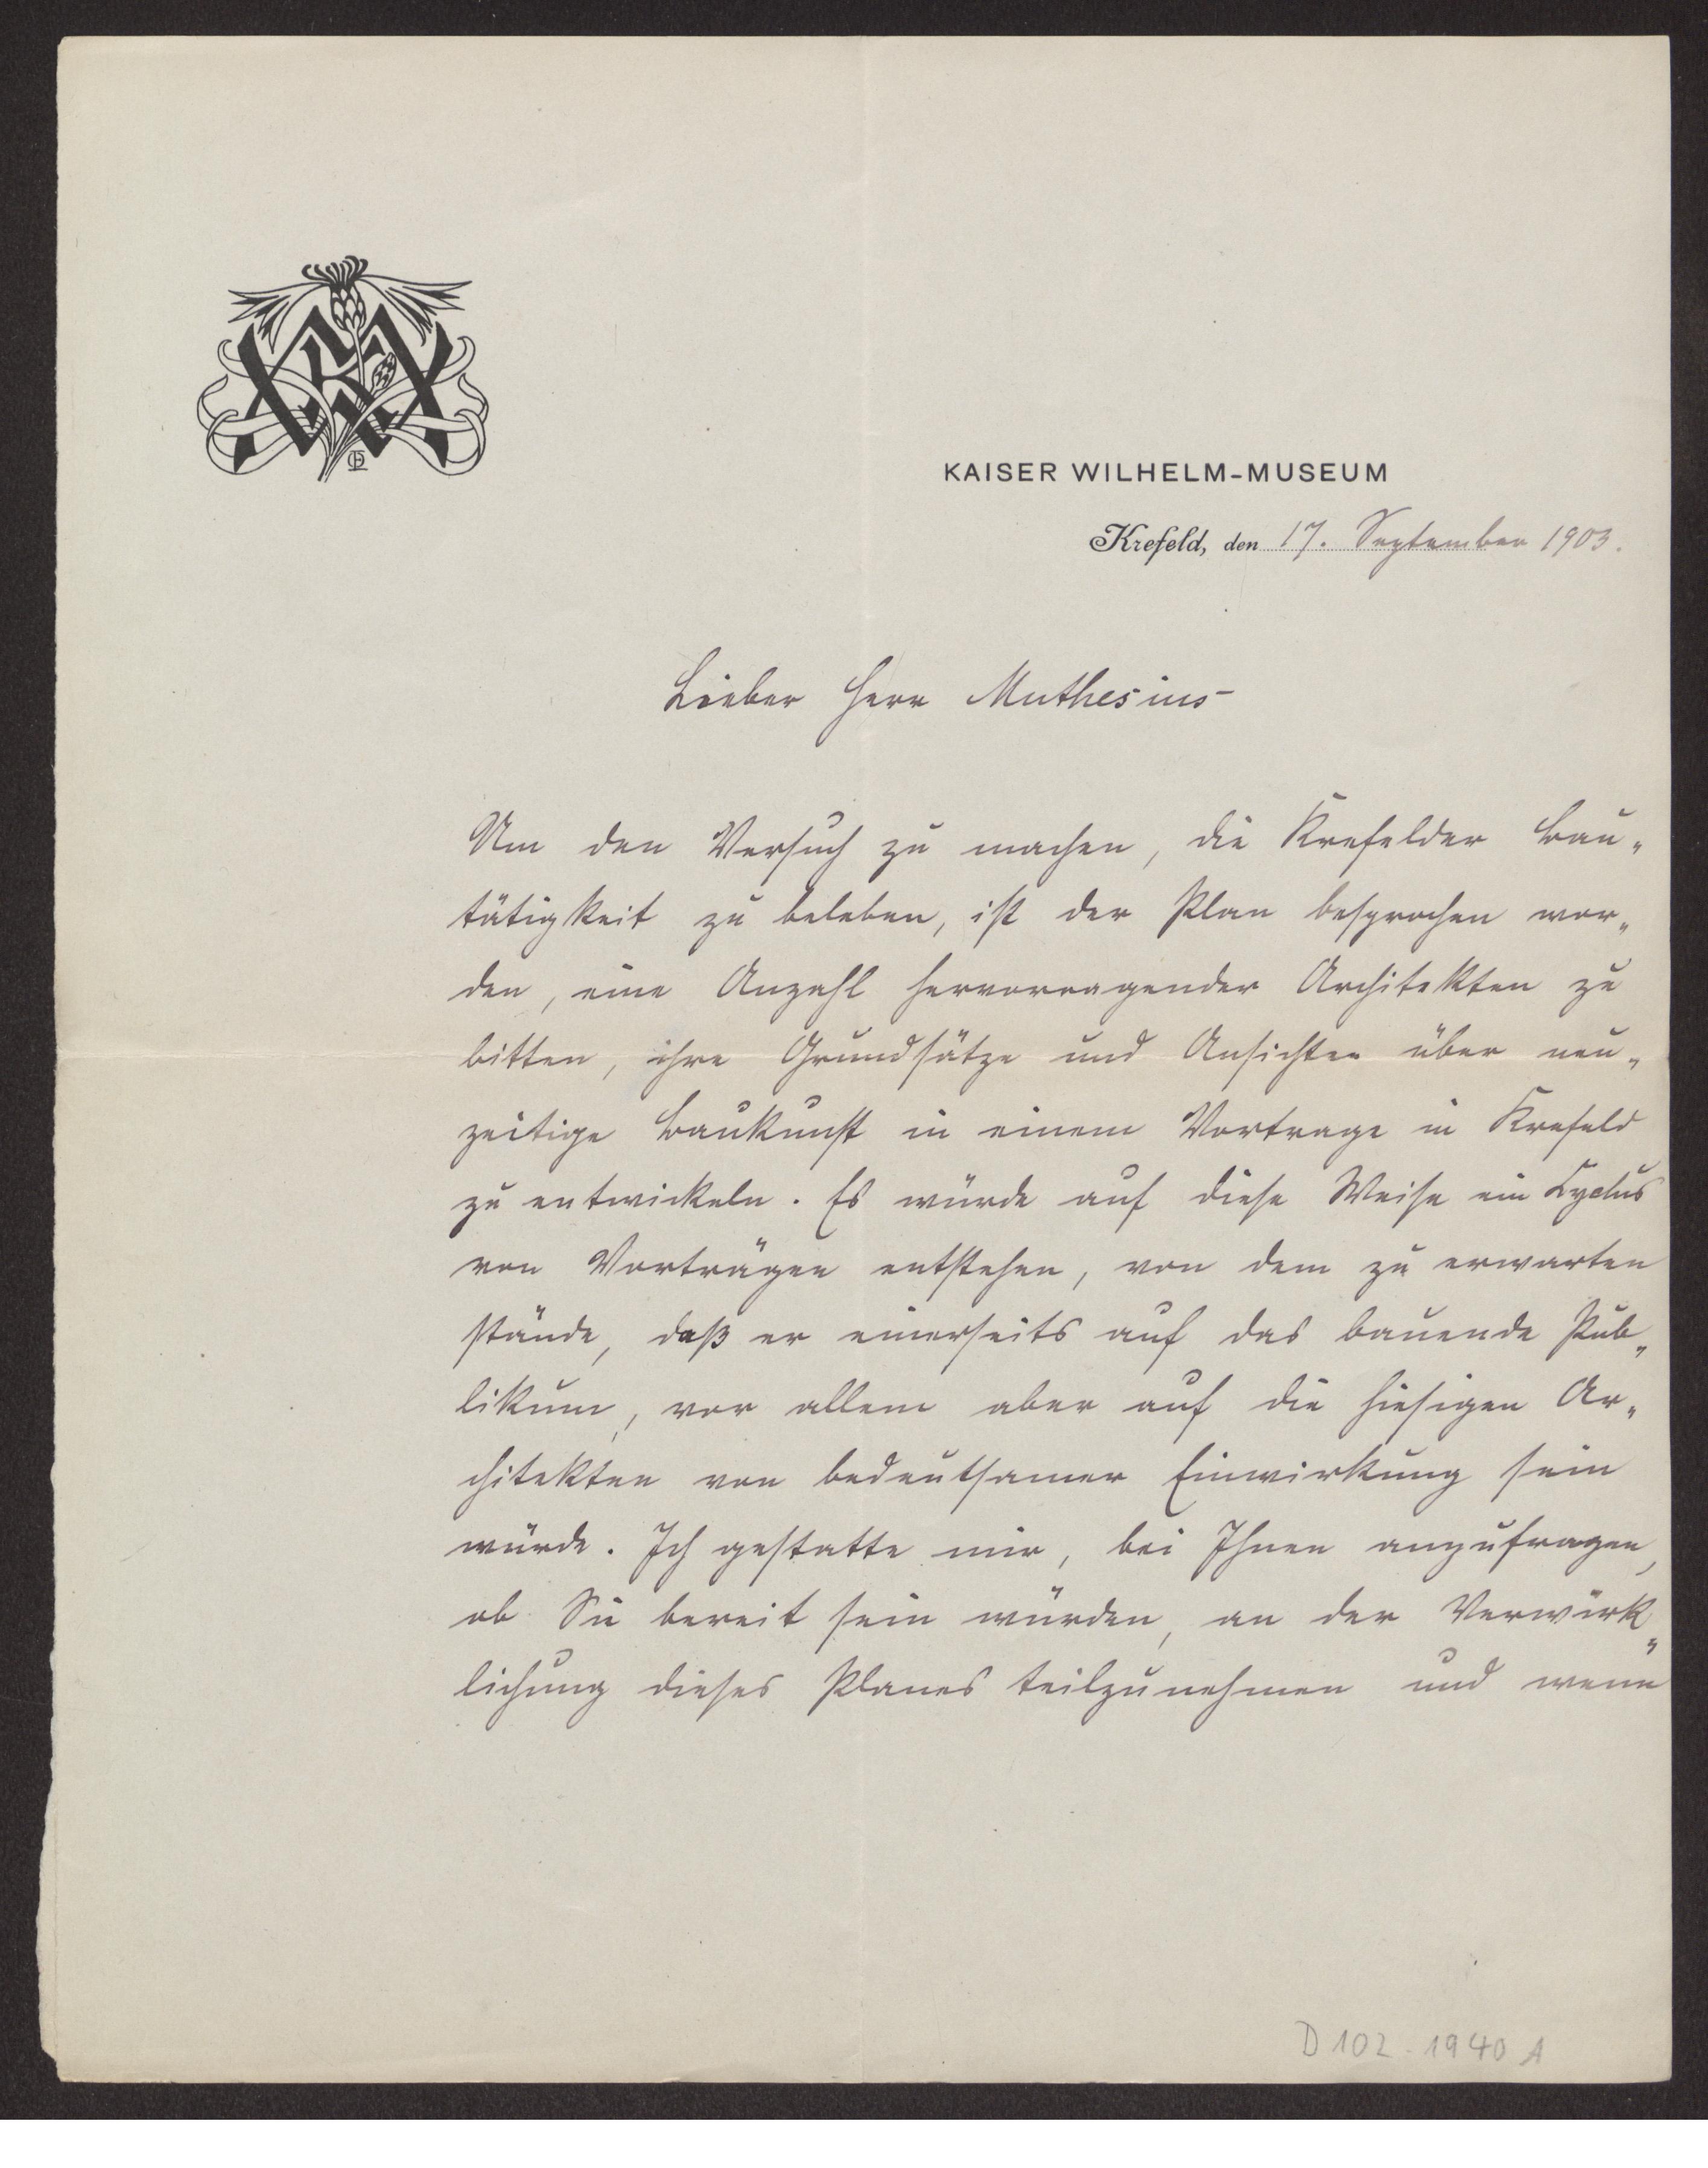 KAISER WILHELM-MUSEUM
Krefeld, den 17. September 1903.
Lieber Herr Muthesius-
Um den Versuch zu machen, die Krefelder Bau„
tätigkeit zu beleben, ist der Plan besprochen wor„
den, eine Anzahl hervorragender Architekten zu
bitten, ihre Grundsätze und Ansichten über neu„
zeitige Baukunst in einem Vortrage in Krefeld
zu entwickeln. Es würde auf diese Weise ein Cyclus
von Vorträgen entstehen, von dem zu erwarten
stände, daß er einerseits auf das bauende Pub„
likum, vor allem aber auf die hiesigen Ar„
chitekten von bedeutsamer Einwirkung sein
würde. Ich gestatte mir, bei Ihnen anzufragen,
ob Sie bereit sein würden, an der Verwirk„
lichung dieses Planes teilzunehmen und wenn
D 102-1940 A